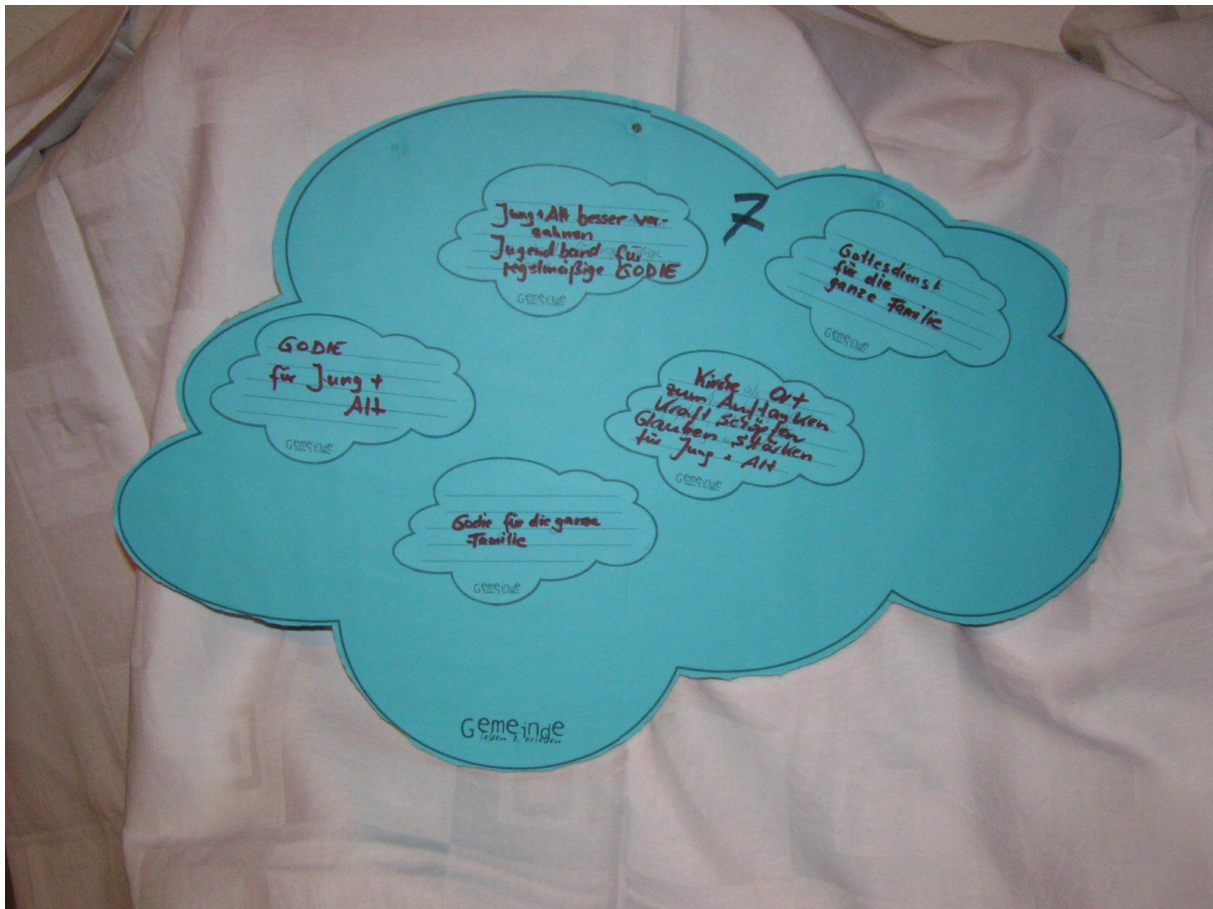 7
Jung + Alt besser ver-
Jugendband für
regelmäßige GODIE
Gemeinde
Gottesdienst
für die
ganze Familie
Gemeinde
GODIE
für Jung +
Alt
Gemeinde
Kirche Ort
zum Auftanken
Kraft schöpfen
Glauben stärken
für Jung + Alt
Gemeinde
Godie für die ganze
Familie
Gemeinde
Gemeinde
leben & erleben